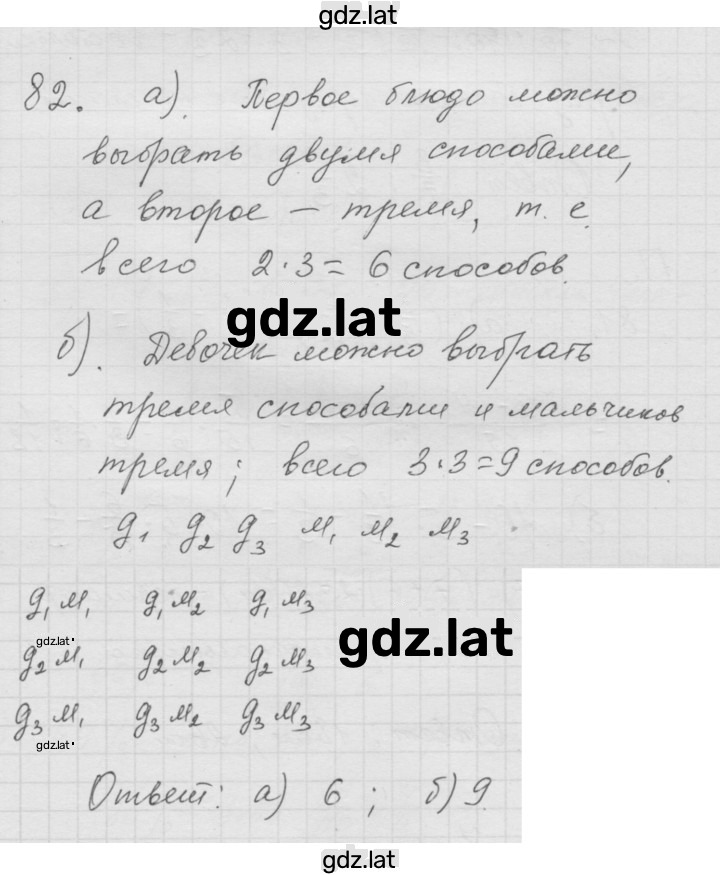 gdz.lat
82. а). Первое блюдо можно
выбрать двумя способами,
а второе – тремя, т. е.
всего 2·3 = 6 способов.
gdz.lat
б). Девочек можно выбрать
тремя способами и мальчиков
тремя; всего 3·3=9 способов.
д₁ д₂ д₃ м₁ м₂ м₃
д₁м₁ д₁м₂ д₁м₃
gdz.lat
gdz.lat
д₂м₁ д₂м₂ д₂м₃
д₃м₁ д₃м₂ д₃м₃
gdz.lat
Ответ: а) 6 ; б) 9.
gdz.lat